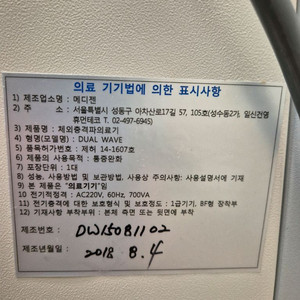 의료 기기법에 의한 표시사항
1) 제조업소명 : 메디젠
2) 주 소 : 서울특별시 성동구 아차산로17길 57, 105호(성수동2가, 일신건영
휴먼테코 T. 02-497-6945)
3) 제품명 : 체외충격파의료기
4) 형명(모델명) : DUAL WAVE
5) 품목허가번호 : 제허 14-1607호
6) 제품의 사용목적 : 통증완화
7) 포장단위 : 1대
8) 성능, 사용방법 및 보관방법, 사용상 주의사항: 사용설명서에 기재
9) 본 제품은 "의료기기"임
10) 전기적정격 : AC220V, 60Hz, 700VA
11) 전기충격에 대한 보호형식 및 보호정도 : 1급기기, BF형 장착부
12) 기재사항 부착부위 : 본체 측면 또는 뒷면에 부착
제조번호: DW150B1102
제조년월일: 2018 8.4